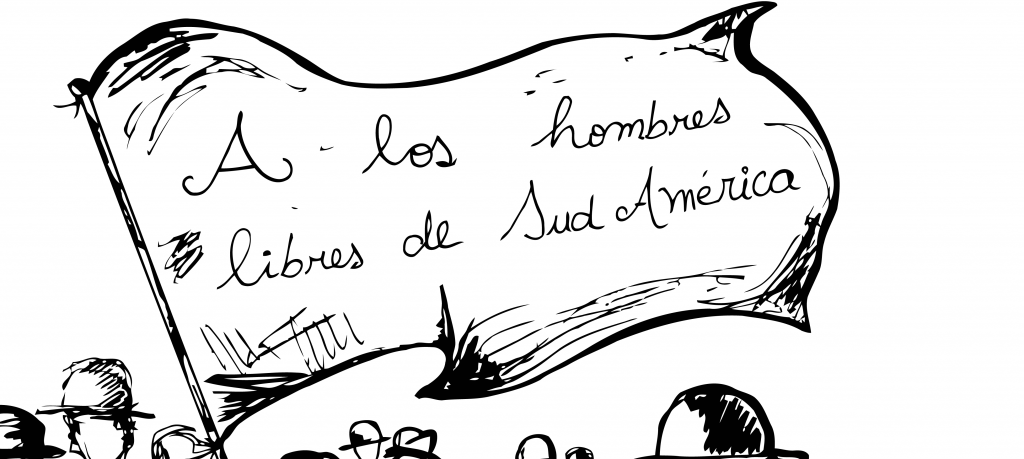 A los hombres
libres de Sud América